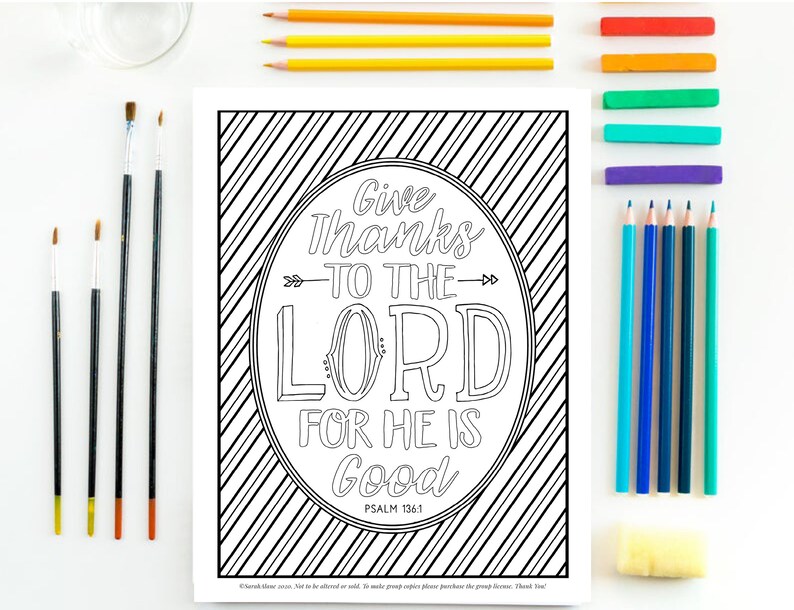 Give
Thanks
TO THE
LORD
FOR HE IS
Good
PSALM 136:1
©SarahAlane 2020. Not to be altered or sold. To make group copies please purchase the group license. Thank You!